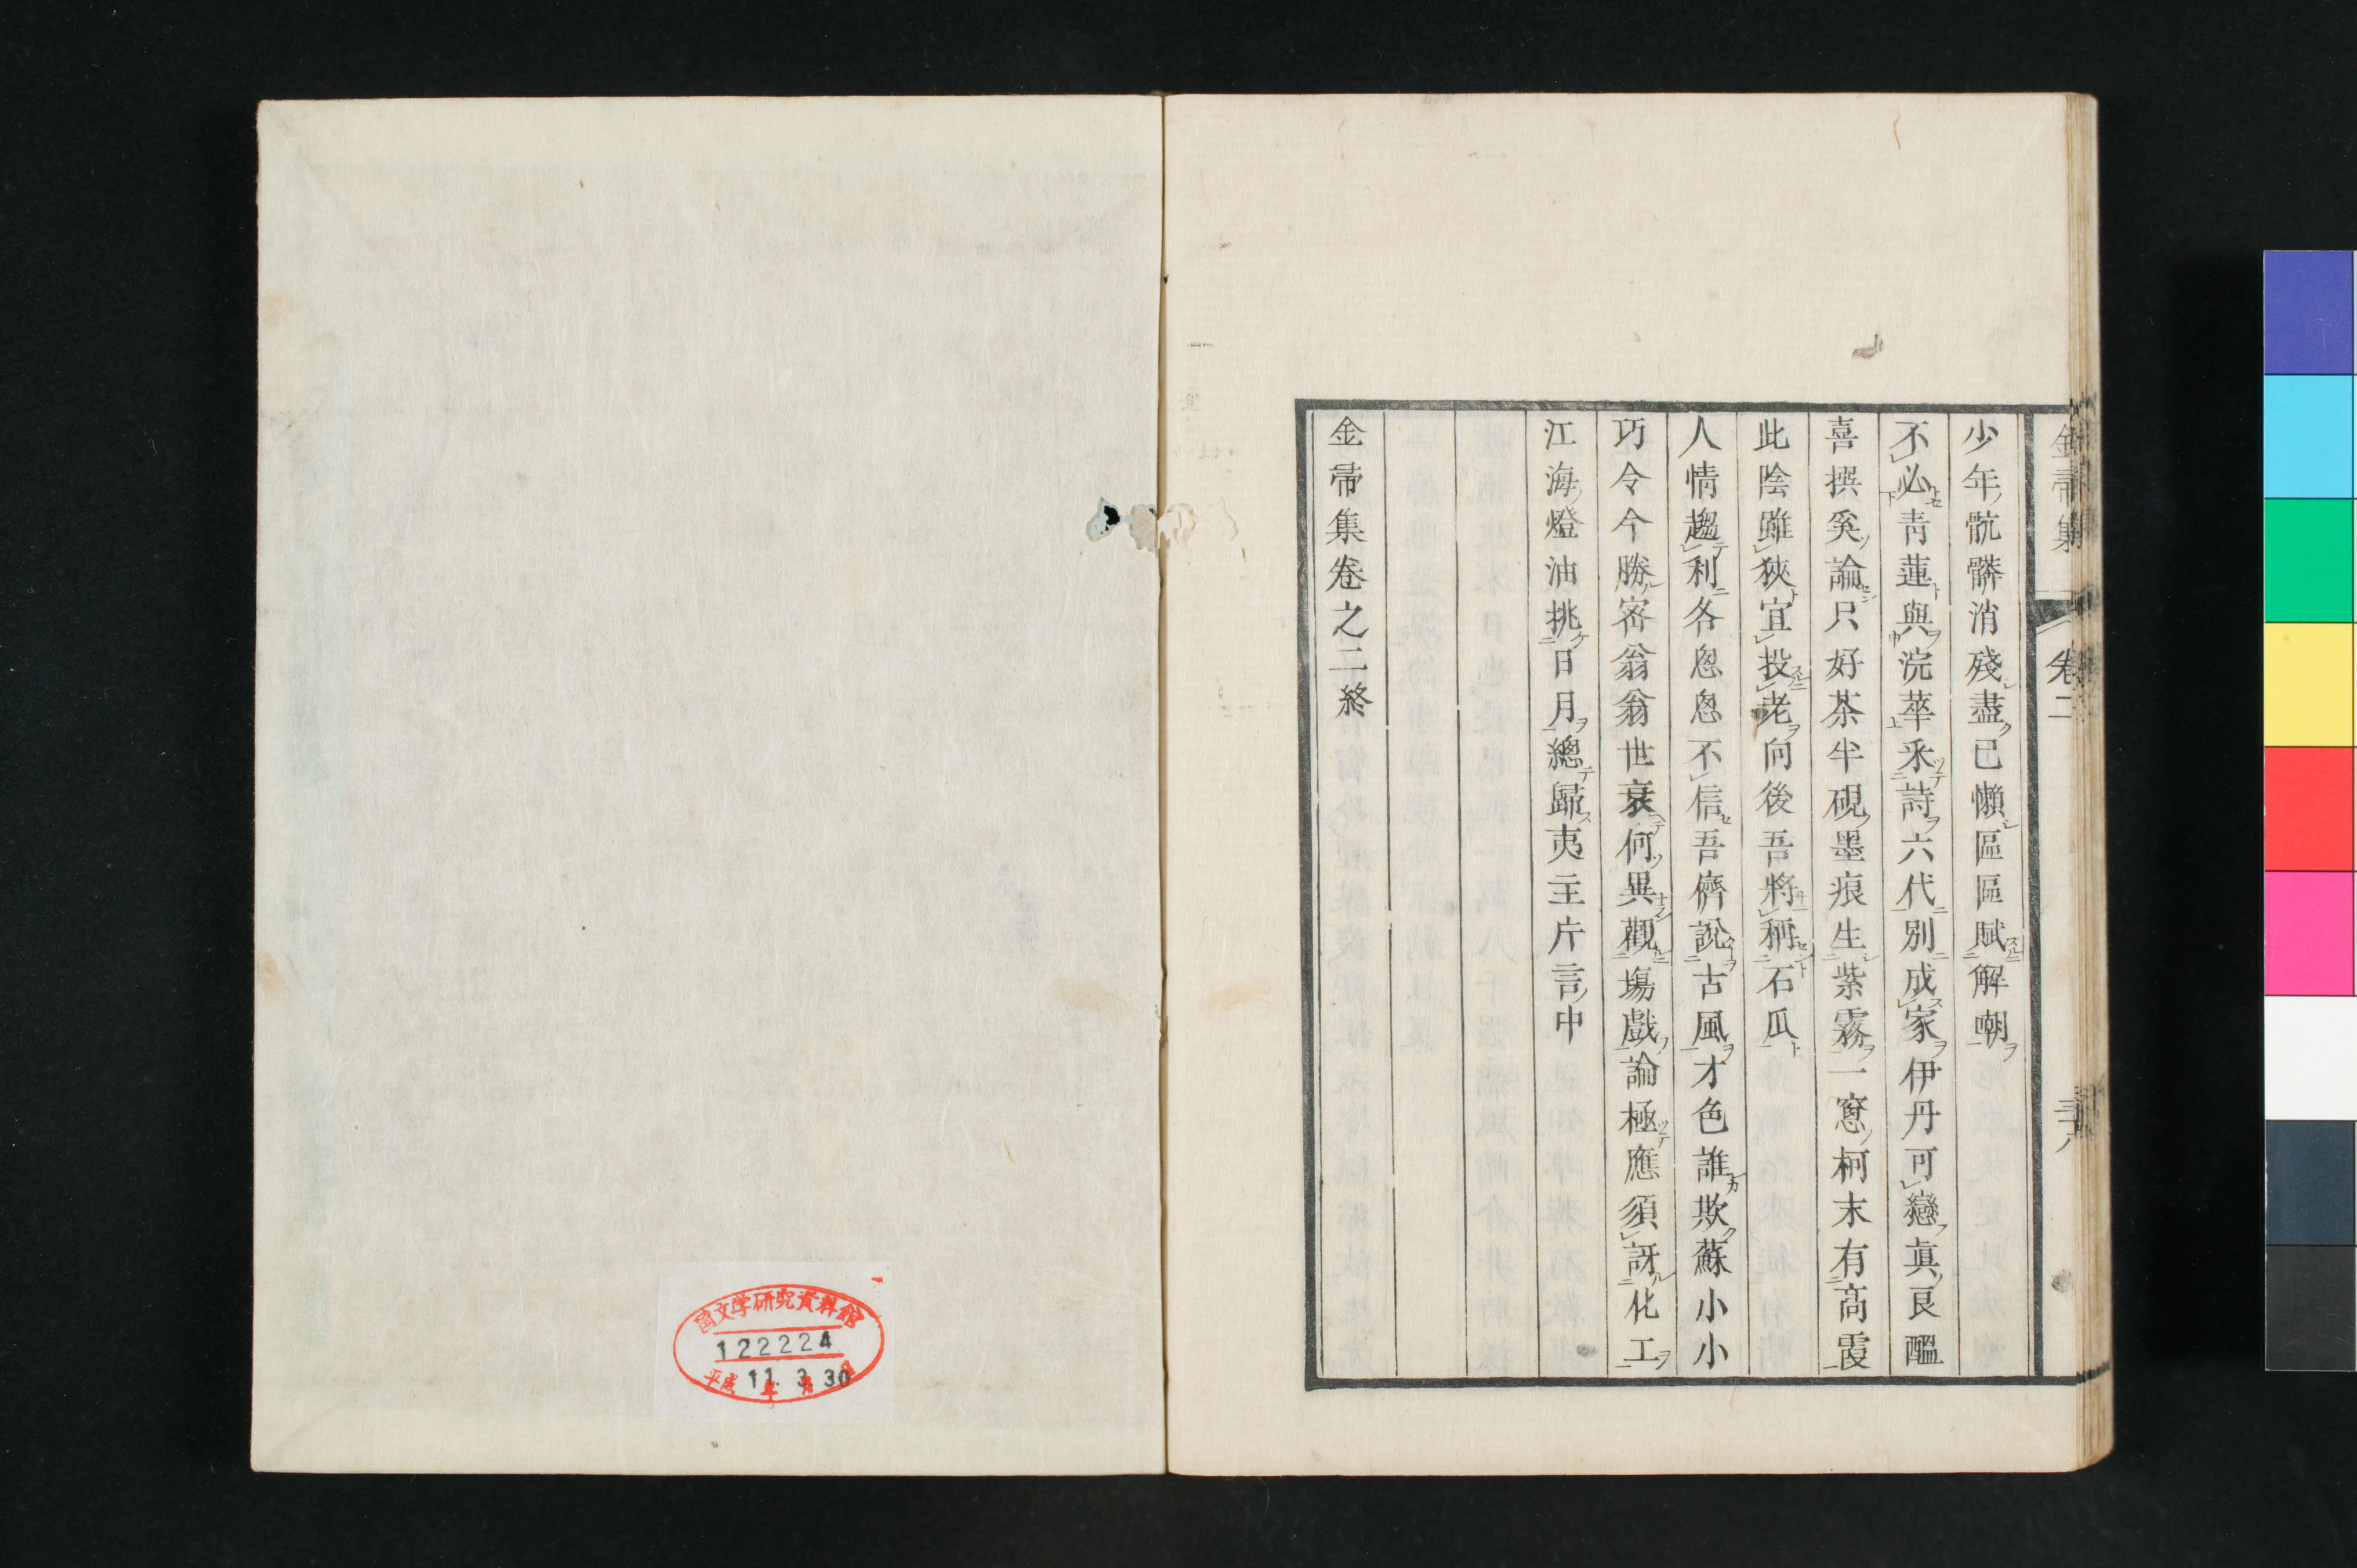 金帚集
卷二
三十八
少年骯髒消殘盡已懶區區賦解嘲
不必靑蓮與浣華釆詩六代別成家伊丹可戀眞良醞
喜撰奚論只好茶半硯墨痕生紫霧一窓柯末有高霞
此陰雖狹宜投老向後吾將稱石瓜
人情趨利各怱怱不信吾儕說古風才色誰欺蘇小小
巧令今勝窓翁翁世衰何異觀場戲論極應須訝化工
江海燈油挑日月總歸夷主片言中
金帚集卷之二終
国文学研究資料館
122224
平成 11年 3月 30日